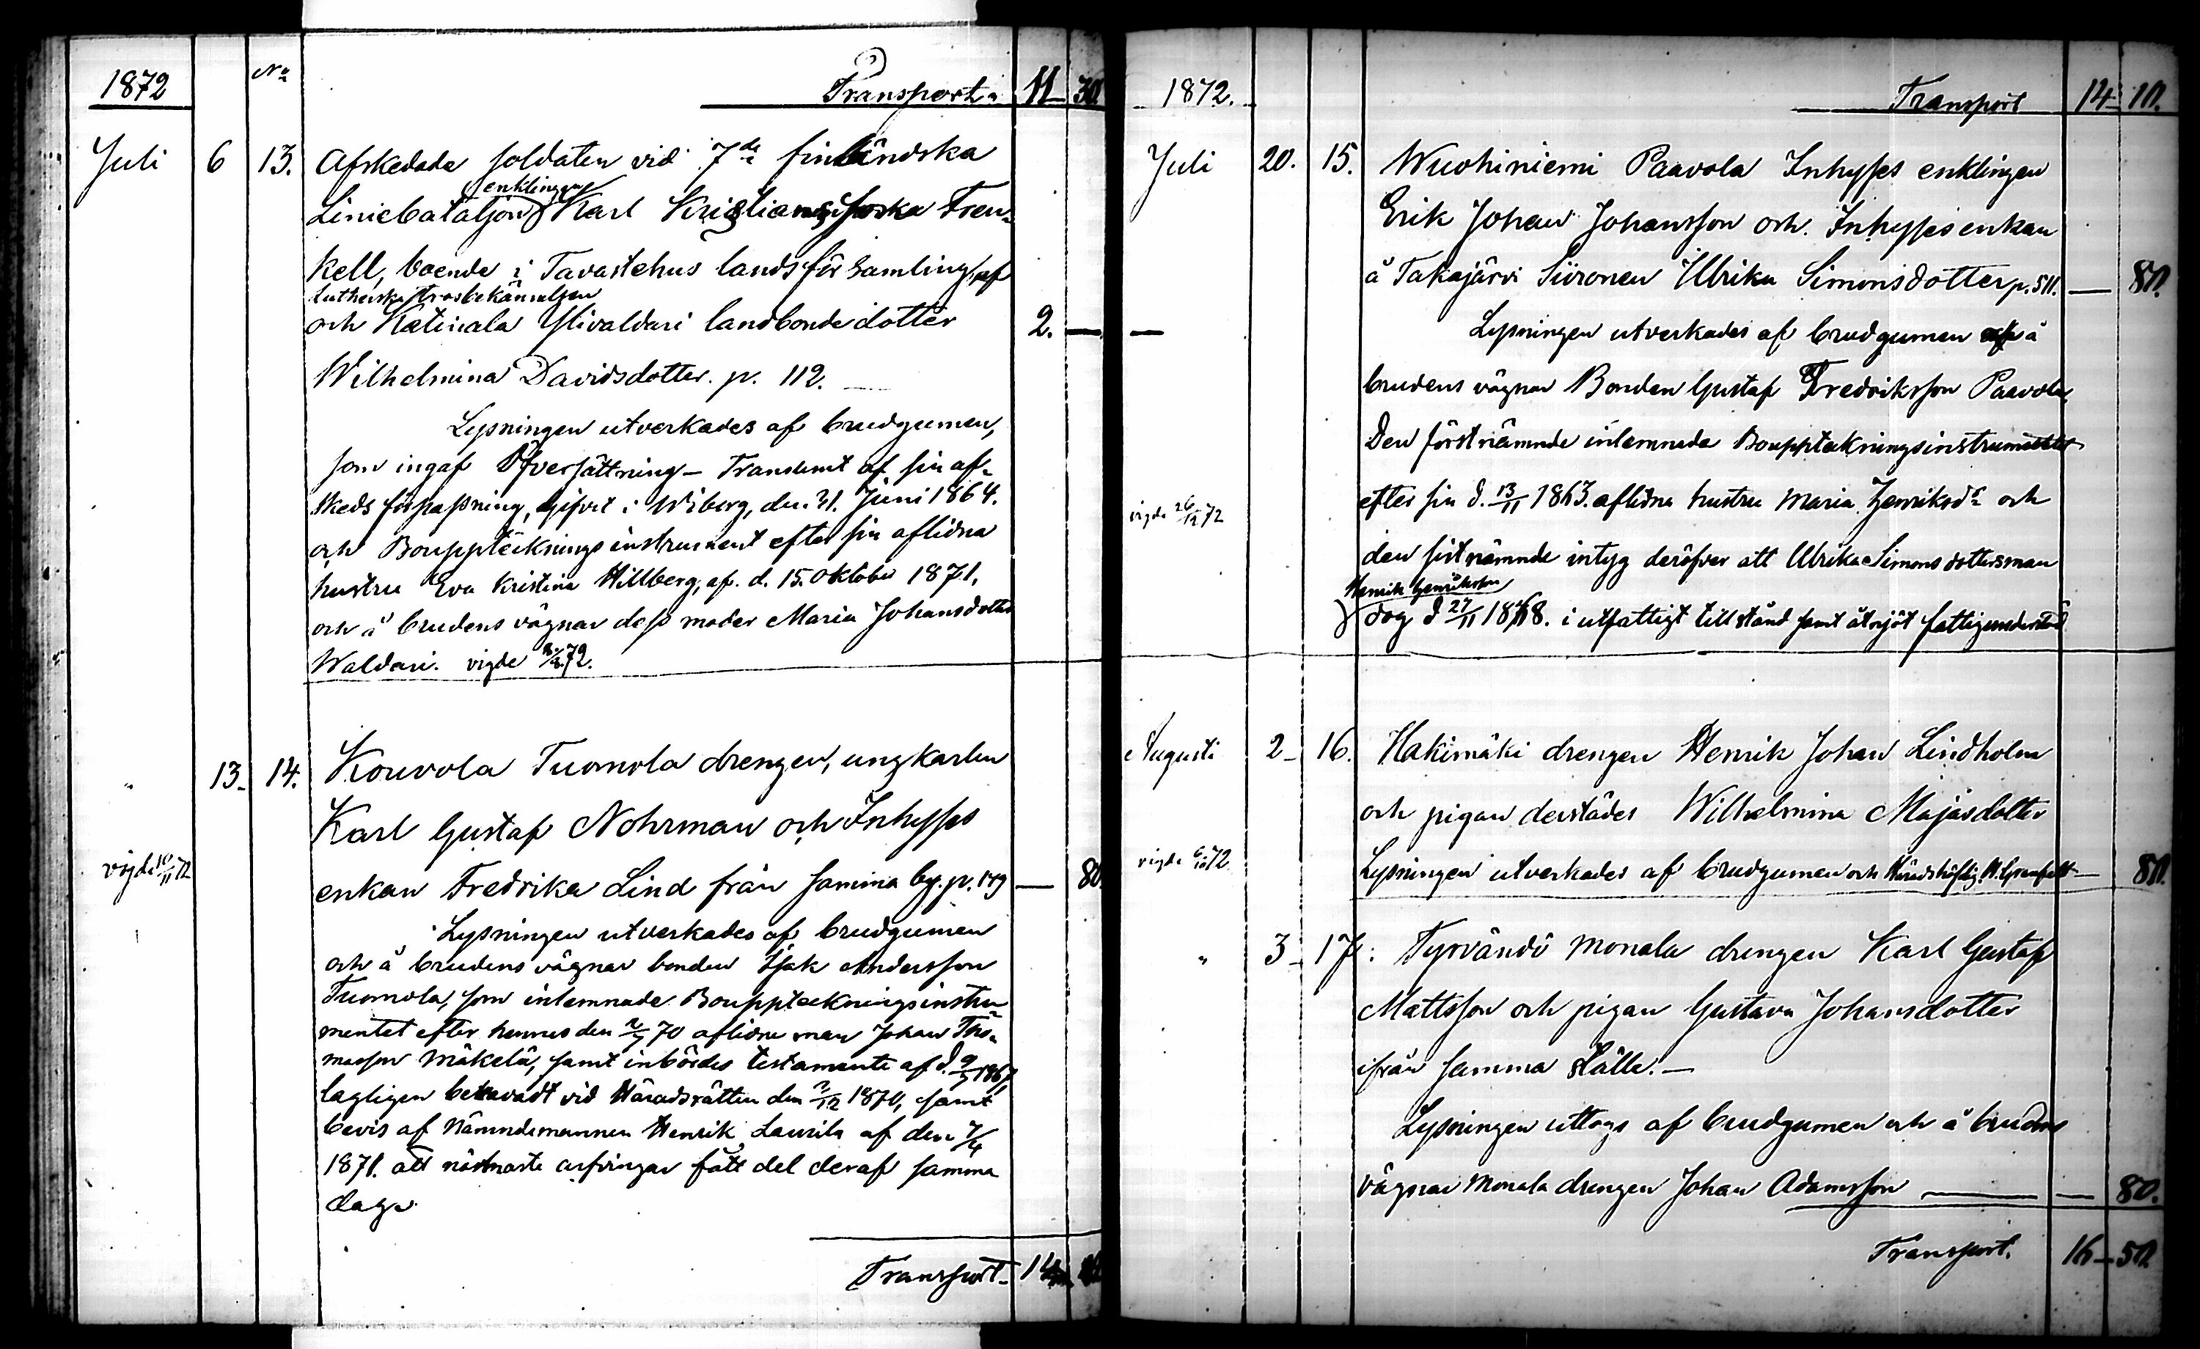 1872 No Transport 11 30
Juli 6 13. Afskedade soldaten vid 7de finländska
enklingen
Liniebataljon Karl Kristiansson Fren-
kell, boende i Tavastehus landsförsamling, af
Lutherska trosbekännelsen
och Katinala Ylivaldari landbondedotter 2. —
Wilhelmina Davidsdotter. p. 112. —
Lysningen utverkades af brudgumen,
som ingaf Öfversättning - Translat af sin af-
skeds förpassning, gifvet i Wiborg, den 31. Juni 1864.
och Bouppteckningsinstrument efter sin aflidna
hustru Eva Kristina Hillberg, af d. 15. Oktober 1871,
och å brudens vägnar dess moder Maria Johansdotter
Waldari. vigde 72.
" 13. 14. Kouvola Tuomola drengen, ungkarlen
Karl Gustaf Nohrman och Inhyses
vigde 10/11 72 enkan Fredrika Lind från samma by. p. 179 — 80
Lysningen utverkades af brudgumen
och å brudens vägnar bonden Isak Andersson
Tuomola, som inlemnade Bouppteckningsinstru-
mentet efter hennes den 70 aflidne man Johan Tho-
masson Mäkelä, samt inbördes testamente af d. 1867,
lagligen bevakadt vid Häradsrätten den 1870, samt
bevis af Nämndemannen Henrik Laurila af den 7/4
1871. att närmaste arfvingar fått del deraf samma
dag.
Transport 14
1872. Transport 14 10.
Juli 20. 15. Wuohiniemi Paavola Inhyses enklingen
Erik Johan Johansson och Inhysesenkan
å Takajärvi Siironen Ulrika Simonsdotter p. 511. — 80.
Lysningen utverkades af brudgumen å
brudens vägnar Bonden Gustaf Fredriksson Paavola,
Den förstnämnde inlemnade Bouppteckningsinstrumentet
vigde 26/12 72 efter sin d. 13/11 1863. aflidna hustru Maria Henriksdr och
den sistnämnde intyg deröfver att Ulrika Simonsdotters man
Henrik Henriksson
dog d 27/11 1868. i utfattigt tillstånd samt åtnjöt fattigunderstöd
Augusti 2 16. Hakimäki drengen Henrik Johan Lindholm
och pigan derstädes Wilhelmina Majasdotter
vigde 6/10 72 Lysningen utverkades af brudgumen och Häradshöfdig. — 80.
" 3 17. Tyrväntö Monala drengen Karl Gustaf
Mattsson och pigan Gustava Johansdotter
ifrån samma ställe. —
Lysningen uttogs af brudgumen och å brudens
vägnar Monala drengen Johan Adamsson — 80.
Transport. 16 50